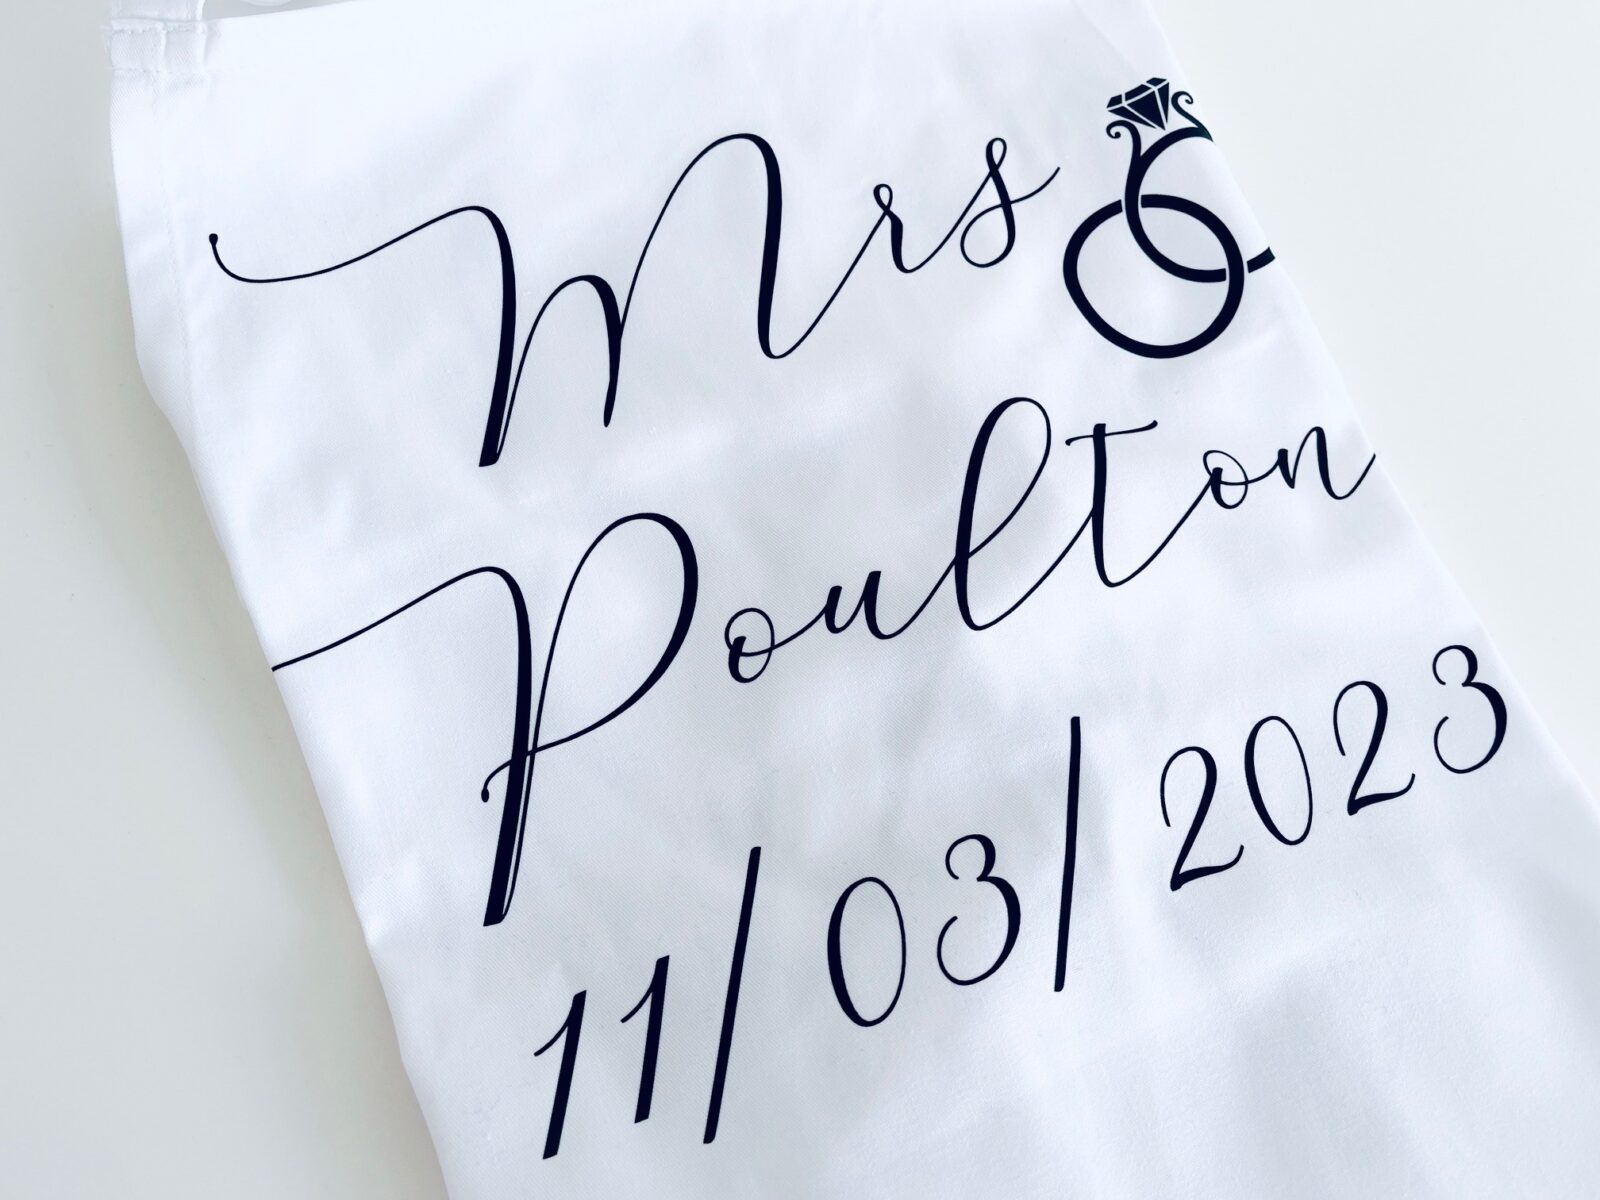 Mrs
Poulton
11/03/2023